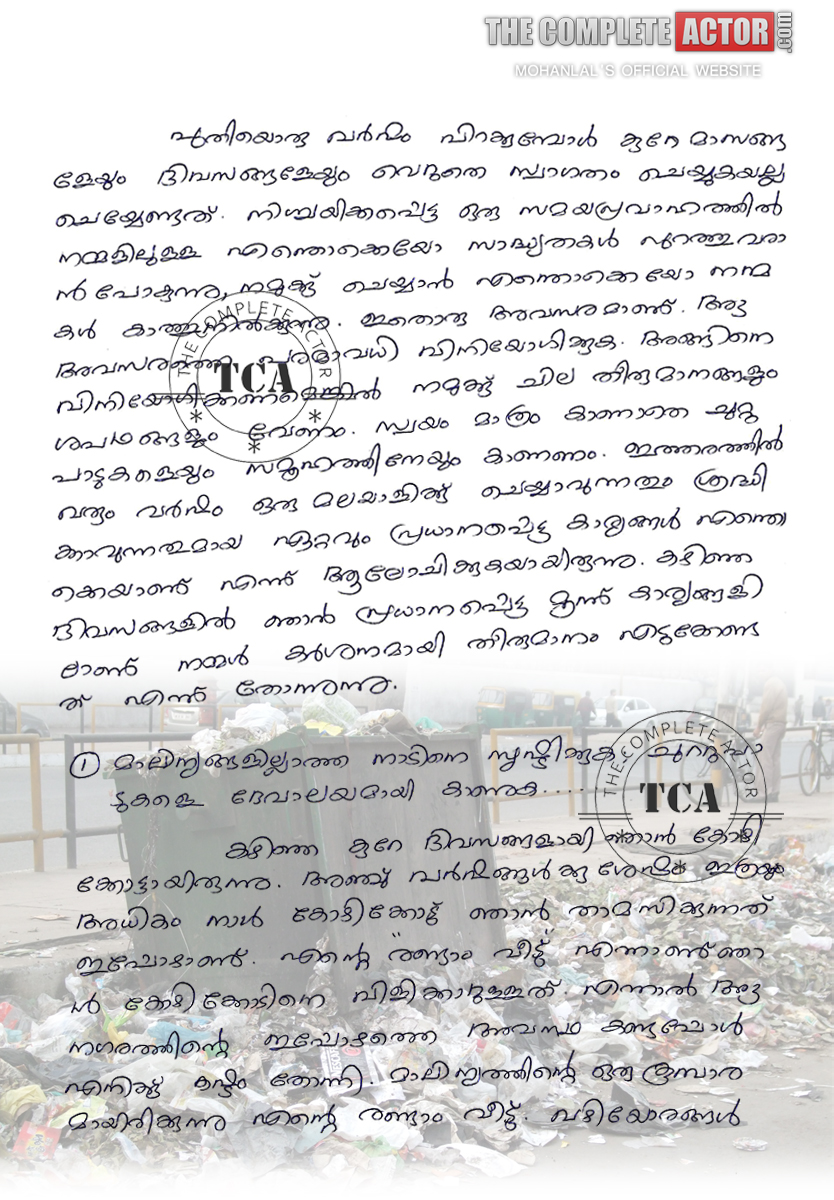 THE COMPLETE ACTOR.com
MOHANLAL'S OFFICIAL WEBSITE
പുതിയൊരു വർഷം പിറക്കുമ്പോൾ കുറേ മാസങ്ങ
ളേയും ദിവസങ്ങളേയും വെറുതെ സ്വാഗതം ചെയ്യുകയല്ല
ചെയ്യേണ്ടത്. നിശ്ചയിക്കപ്പെട്ട ഒരു സമയപ്രവാഹത്തിൽ
നമ്മളിലുള്ള എന്തൊക്കെയോ സാദ്ധ്യതകൾ പുറത്തുവരാ
ൻ പോകുന്നു, നമുക്ക് ചെയ്യാൻ എന്തൊക്കെയോ നന്മ
കൾ കാത്തുനിൽക്കുന്നു. ഇതൊരു അവസരമാണ്. ആ
അവസരത്തെ പരമാവധി വിനിയോഗിക്കുക. അങ്ങിനെ
വിനിയോഗിക്കണമെങ്കിൽ നമുക്ക് ചില തീരുമാനങ്ങളും
ശപഥങ്ങളും വേണം. സ്വയം മാത്രം കാണാതെ ചുറ്റു
പാടുകളെയും സമൂഹത്തിനേയും കാണണം. ഇത്തരത്തിൽ
വരും വർഷം ഒരു മലയാളിക്ക് ചെയ്യാവുന്നതും ശ്രദ്ധി
ക്കാവുന്നതുമായ ഏറ്റവും പ്രധാനപ്പെട്ട കാര്യങ്ങൾ എന്തൊ
ക്കെയാണ് എന്ന് ആലോചിക്കുകയായിരുന്നു. കഴിഞ്ഞ
ദിവസങ്ങളിൽ ഞാൻ പ്രധാനപ്പെട്ട മൂന്ന് കാര്യങ്ങളി
ലാണ് നമ്മൾ കർശനമായി തീരുമാനം എടുക്കേണ്ട
ത് എന്ന് തോന്നുന്നു.
1 മാലിന്യങ്ങളില്ലാത്ത നാടിനെ സൃഷ്ടിക്കുക, ചുറ്റുപാ
ടുകളെ ദേവാലയമായി കാണുക....
കഴിഞ്ഞ കുറേ ദിവസങ്ങളായി ഞാൻ കോഴി
ക്കോട്ടായിരുന്നു. അഞ്ചു വർഷങ്ങൾക്കു ശേഷം ഇത്രയും
അധികം നാൾ കോഴിക്കോട്ട് ഞാൻ താമസിക്കുന്നത്
ഇപ്പോഴാണ്. എന്റെ "രണ്ടാം വീട്" എന്നാണ് ഞാ
ൻ കോഴിക്കോടിനെ വിളിക്കാറുള്ളത്. എന്നാൽ ആ
നഗരത്തിന്റെ ഇപ്പോഴത്തെ അവസ്ഥ കണ്ടപ്പോൾ
എനിക്കു കഷ്ടം തോന്നി. മാലിന്യത്തിന്റെ ഒരു കൂമ്പാര
മായിരിക്കുന്നു എന്റെ രണ്ടാം വീട്. വഴിയോരങ്ങൾ
THE COMPLETE ACTOR
TCA
THE COMPLETE ACTOR
TCA